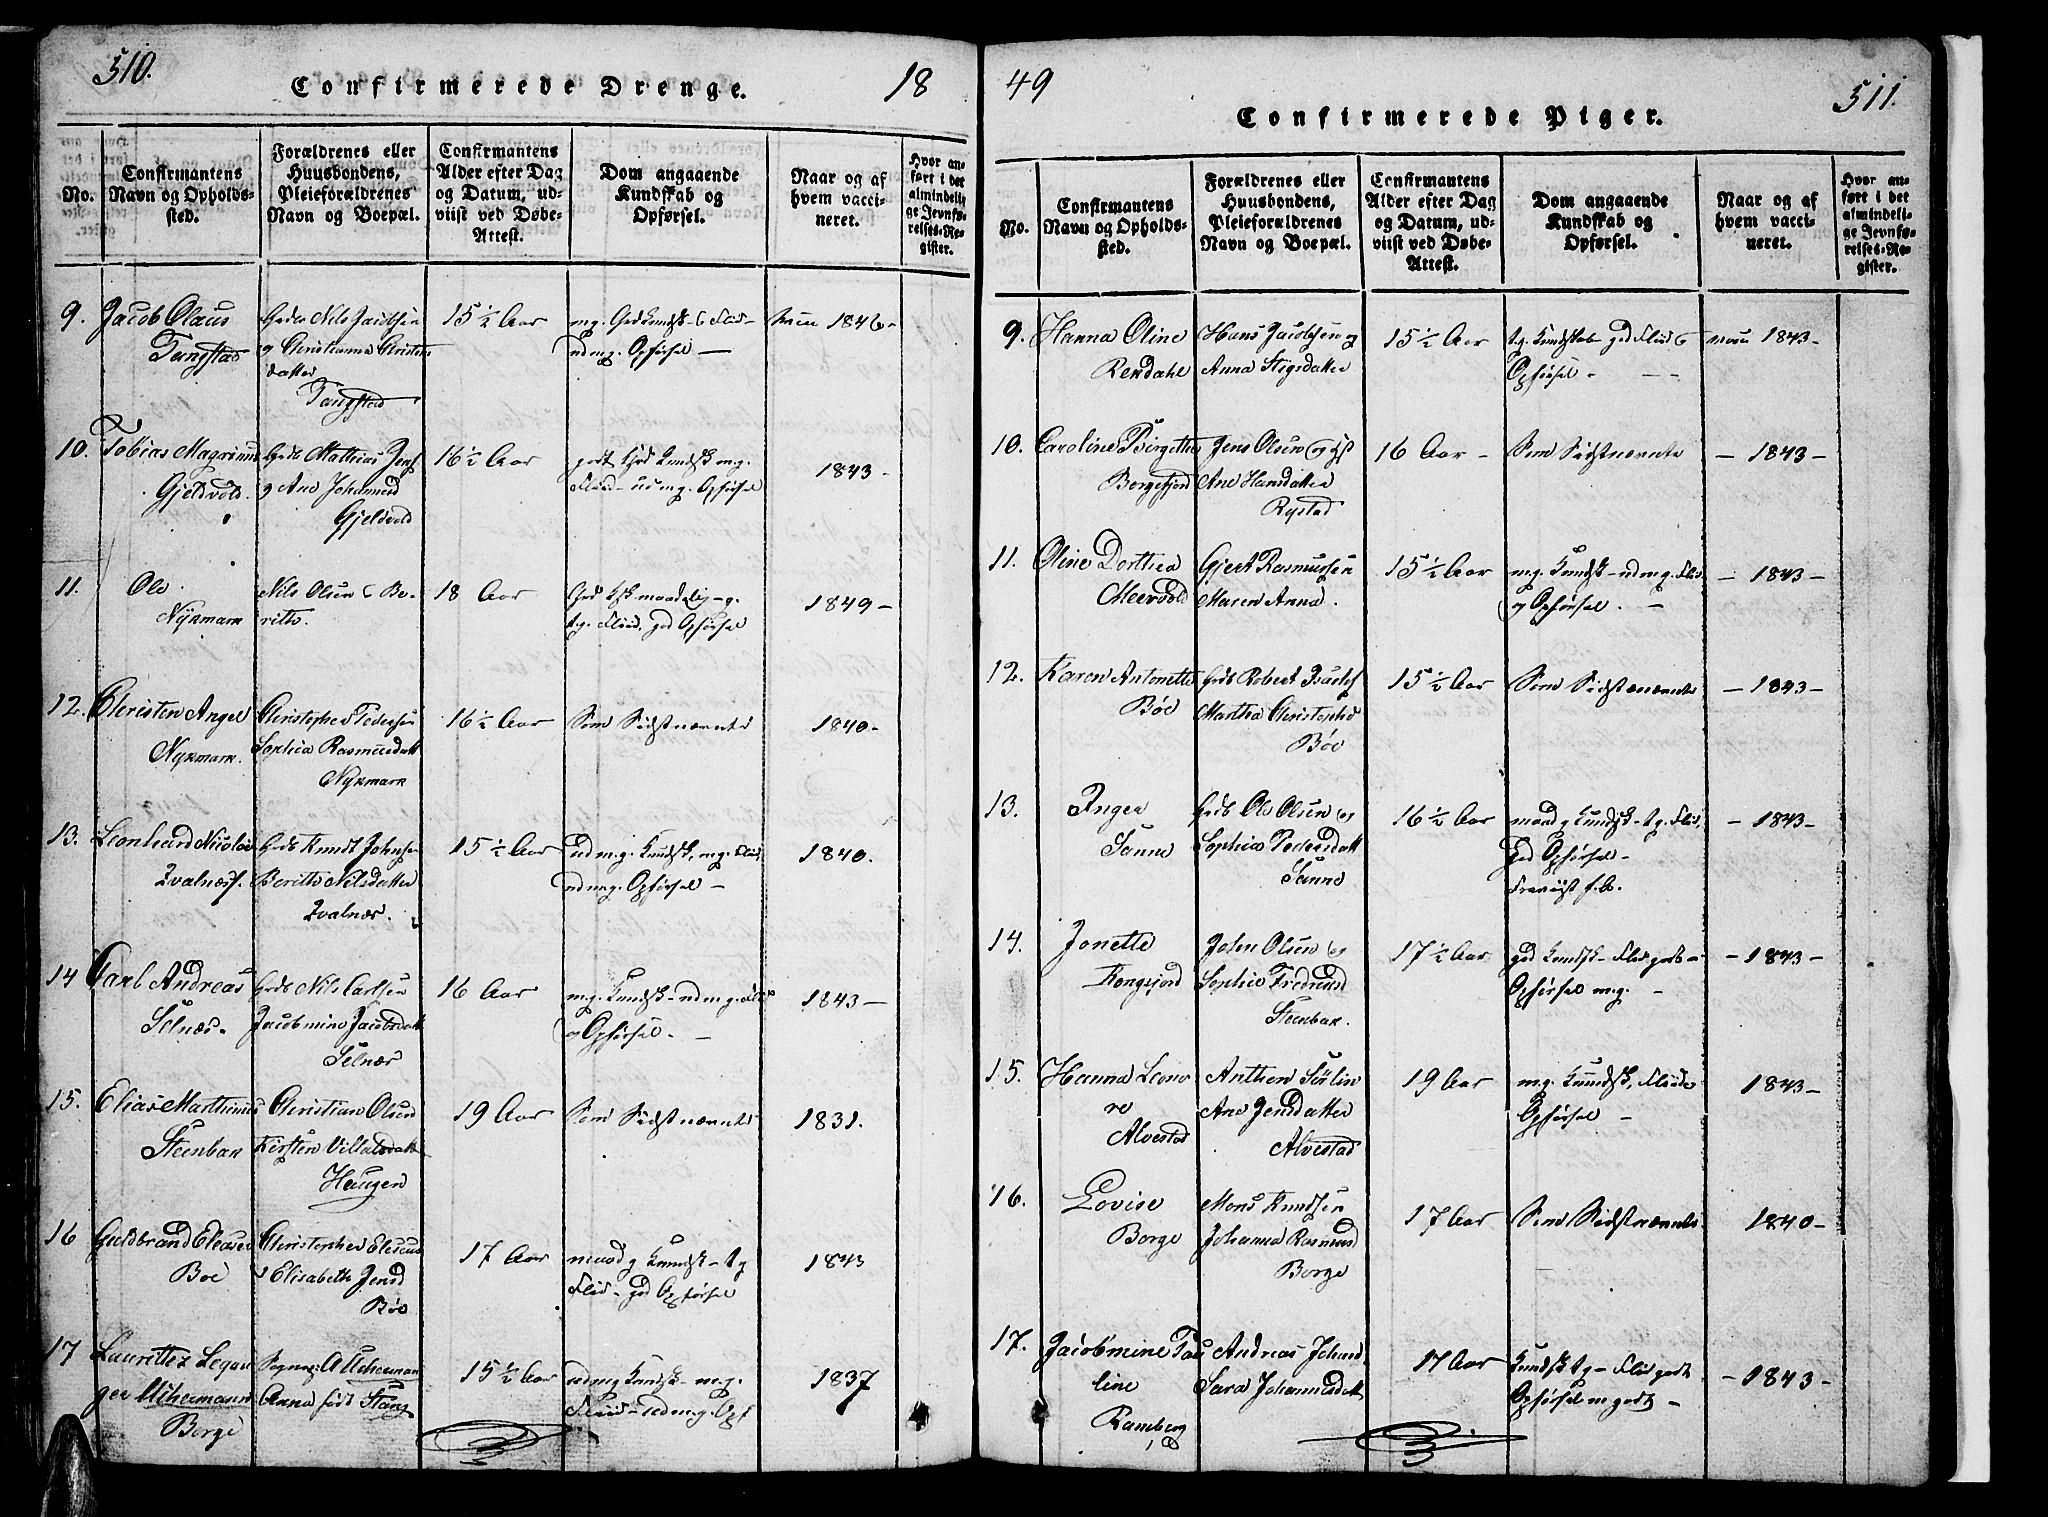 510.
Confirmerede Drenge.
18
No.
Confirmantens
Navn og Opholds-
sted.
Forældrenes eller
Huusbondens,
Pleieforældrenes
Navn og Boepæl.
Confirmantens
Alder efter Dag
og Datum, ud-
viist ved Døbe-
Attest.
Dom angaaende
Kundskab og
Opførsel.
Naar og af
hvem vacci-
neret.
Hvor an-
ført i det
almindeli-
ge Jevnfø-
relses-Re-
gister.
9. Jacob Olaus
Tangstad
Nils Jacobsen
og Christianna Christens
datter
Tangstad
15½ Aar
Opførsel —
1846-
10. Tobias Magrinus
Gjeldvold.
Mathias Jens
og Ane Johannesd
Gjeldvold
16½ Aar
godt
Flid - udmg. Opførsel
1843
11. Ole
Nykmark
Nils Olsen & Be-
rithe.
18 Aar
tg. Fliid, god Opførsel
1849-
12. Christen Angel
Nykmark.
Christopher Pedersen
Sophia Rasmusdatt
Nykmark
16½ Aar
Som Sidstnævnte
1840-
13. Leonhard Nicolai
Qvalnæs.
Knudt Johnsen
Berithe Nilsdatter
Qvalnæs.
15½ Aar
udmg. Kundsk, mg. Fliid
udmg. Opførsel -
1840.
14 Carl Andreas
Selnæs-
Nils Carlsen
Jacobmine Jacobsdatt
Selnæs
16 Aar
mg. Kundsk-udmg. Flid
og Opførsel. -
1843-
15. Elias Marthinus
Steenbak
Christian Olsen
Kirsten Villatsdatt
Haugen
19 Aar
Som Sidstnævnte
1831.
16 Guldbrand Eleseus
Boe
Christopher Eleseus
Elisabeth Jensd
Böe
17 Aar
maadg Kundsk - tg
Fliid - god Opførsel
1843
17 Lauritz Legan
ger Uchermann
Borge
A Uchermann
Anna född Stang
15½ Aar
udmg Kundsk - mg.
Fliid - udmg. Opf
1837
49
Confirmerede Piger.
511.
No.
Confirmantens
Navn og Opholds-
sted.
Forældrenes eller
Huusbondens,
Pleieforældrenes
Navn og Boepæl.
Confirmantens
Alder efter Dag
og Datum, ud-
viist ved Døbe-
Attest.
Dom angaaende
Kundskab og
Opførsel.
Naar og af
hvem vacci-
neret.
Hvor an-
ført i det
almindeli-
ge Jevnfø-
relses-Re-
gister.
9. Hanna Oline
Rekdahl
Hans Jacobsen og
Anna Stigsdatter
15½ Aar
tg. Kundskab god Fliid &
Opførsel -
1843-
10. Caroline Birgitte
Borgefjord
Jens Olsen og
Ane Hansdatter
Rystad
16 Aar -
Som Sidstnævnte
- 1843-
11. Oline Dorthea
Meervold
Gjert Rasmussen
Maren Anna.
15½ Aar
mg. Kundsk - udmg. Flid
og Opførsel. -
- 1843-
12. Karen Antonette
Böe
Robert Isachs
Martha Christophd
Böe
15½ Aar
Som Sidstnævnte
- 1843-
13. Inger
Sanne
Ole Olsen og
Sophia Pedersdatt
Sanne
16½ Aar
maadg Kundsk - tg. Fliid,
god Opførsel -
- 1843-
14. Jonette
Kongsjord
John Olsen og
Sophia Fredriksd
Steenbak.
17½ Aar
god Kundsk - Fliid godt -
Opførsel mg. -
- 1843-
15. Hanna Leono
re
Alvestad
Anthon Sörlin
Ane Jensdatter
Alvestad
19 Aar
mg. Kundsk, Fliid &
Opførsel -
1843-
16. Lovise
Borge
Mons Knudsen
Johanna Rasmusd
Borge
17 Aar
Som Sidstnævnte
1840-
17. Jacobmine Pau
line
Ramberg
Andreas Johans
Sara Johannesdatt
17 Aar
Kundsk tg - Fliid godt
Opførsel m godt -
- 1843-